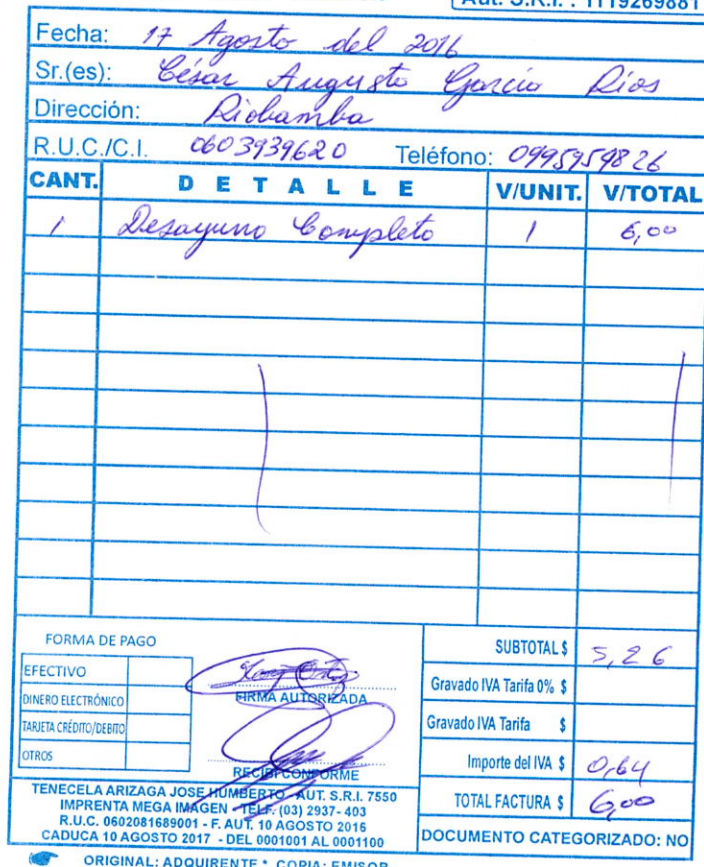 Aut. S.R.I. : 1119269881
Fecha: 17 Agosto del 2016
Sr.(es): César Augusto García Ríos
Dirección: Riobamba
R.U.C./C.I. 0603939620 Teléfono: 0995959826
CANT. DETALLE V/UNIT. V/TOTAL
1 Desayuno Completo 1 6,00
FORMA DE PAGO
EFECTIVO
DINERO ELECTRÓNICO
TARJETA CRÉDITO/DEBITO
OTROS
FIRMA AUTORIZADA
RECIBI CONFORME
SUBTOTAL $ 5,26
Gravado IVA Tarifa 0% $
Gravado IVA Tarifa $
Importe del IVA $ 0,64
TOTAL FACTURA $ 6,00
TENECELA ARIZAGA JOSE HUMBERTO - AUT. S.R.I. 7550
IMPRENTA MEGA IMAGEN - TELF. (03) 2937- 403
R.U.C. 0602081689001 - F. AUT. 10 AGOSTO 2016
CADUCA 10 AGOSTO 2017 - DEL 0001001 AL 0001100
DOCUMENTO CATEGORIZADO: NO
ORIGINAL: ADQUIRENTE * COPIA: EMISOR